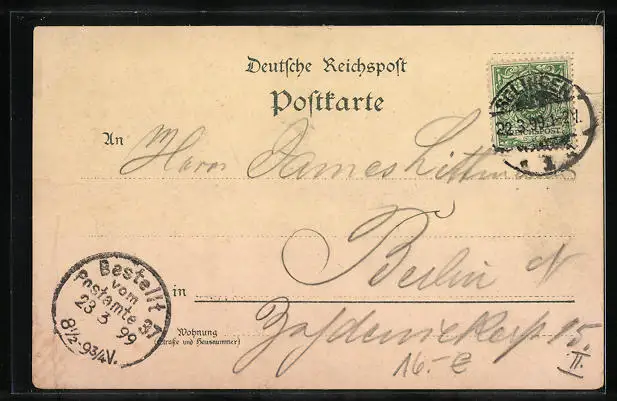 Deutsche Reichspost
Postkarte
SOLINGEN
22.3.99.1-2N.
1
REICHSPOST
An Herrn James Littmann
Bestellt
vom
Postamte 37
23 3 99
8½-9¾V.
in Berlin N
Wohnung
(Straße und Hausnummer)
15. II.
16.-€